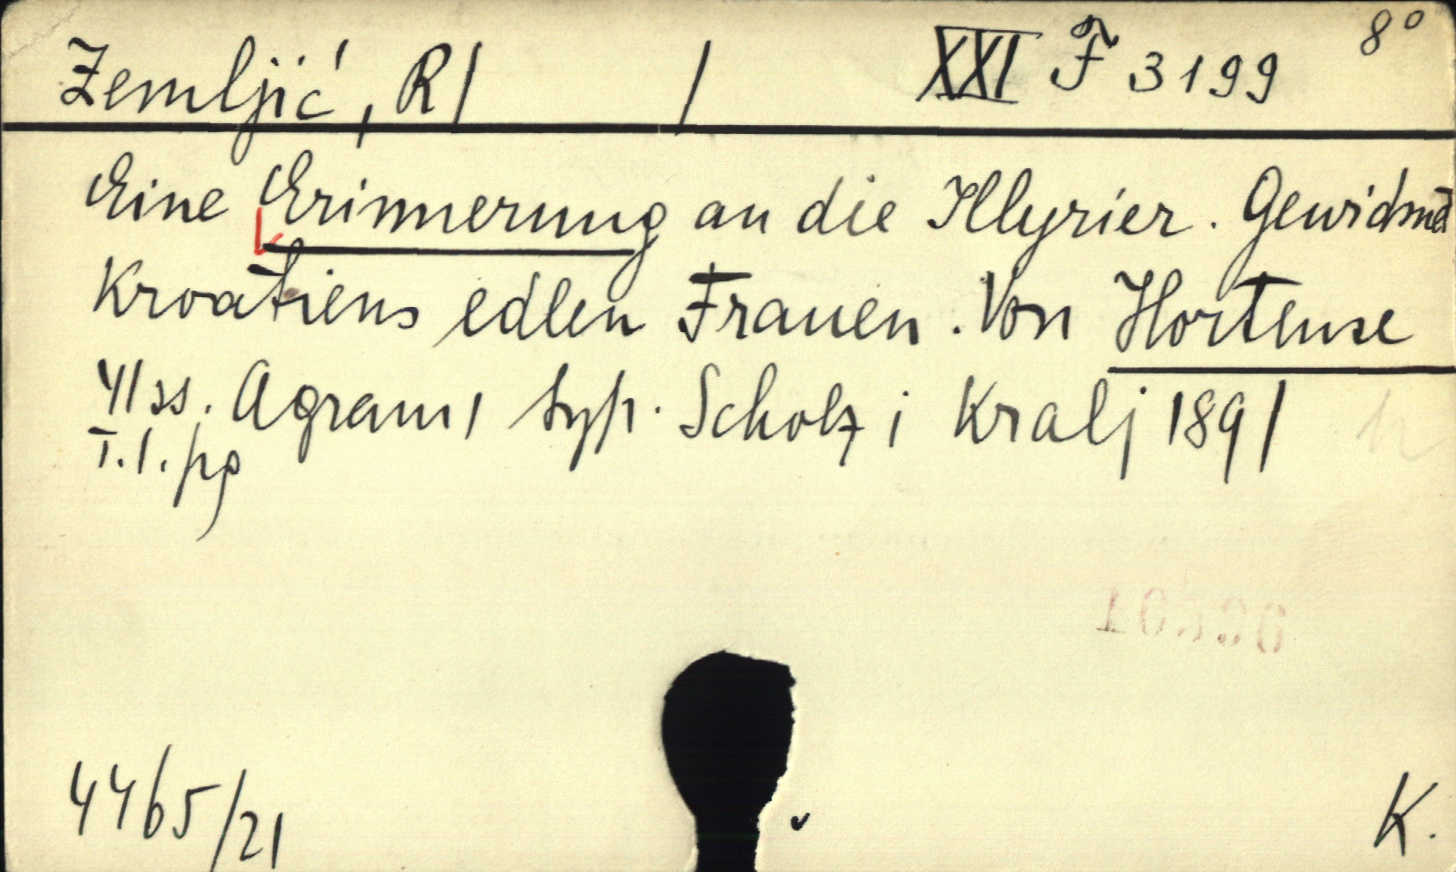 Zemljić, R / / XXI F 3199 8°
Eine Erinnerung an die Illyrier. Gewidmet
Kroatiens edlen Frauen. Von Hortense
41 ss. Agram, typ. Scholz i Kralj 1891
T. l. pg
4465/21
K.